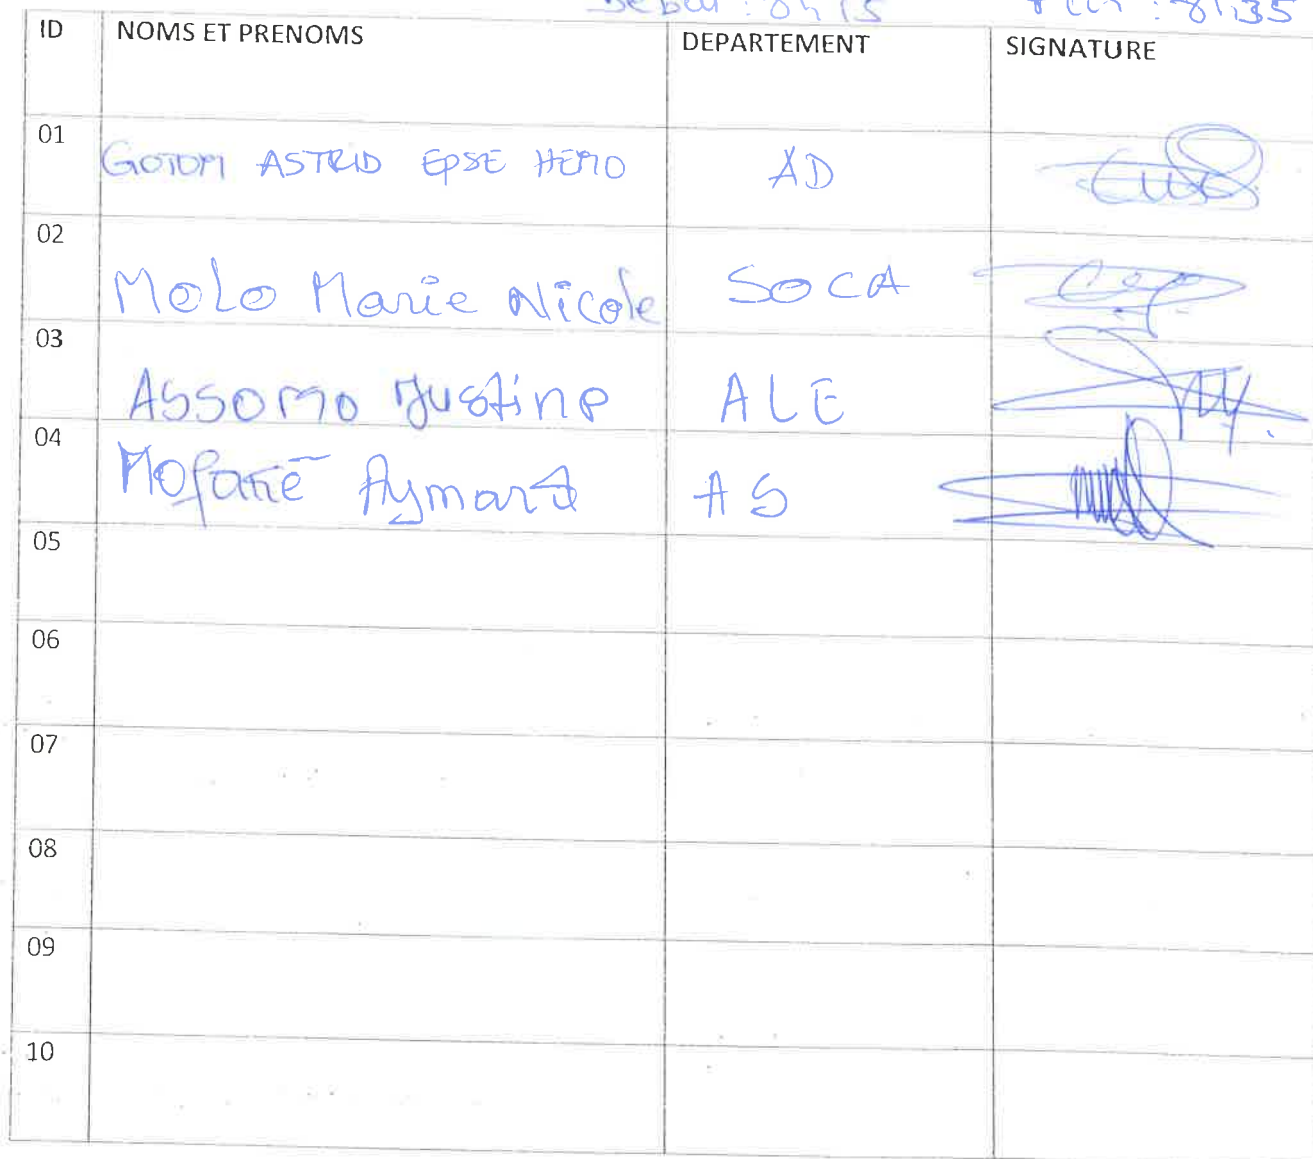 Debut : 8h15 Fin : 8h35
ID NOMS ET PRENOMS DEPARTEMENT SIGNATURE
01 GOTOM ASTRID EPSE HEMO AD
02 Molo Marie Nicole SOCA
03 ASSOMO Justine ALE
04 Aymard AS
05
06
07
08
09
10